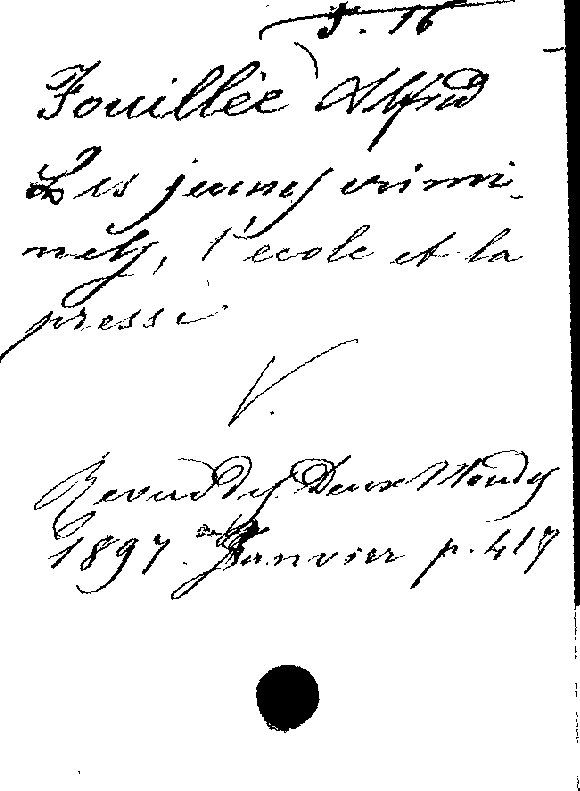 5. 16
Fouillée Alfred
Les jeunes crimi-
nels, l'école et la
presse
V.
Revue des Deux Mondes
1897. Janvier p. 417